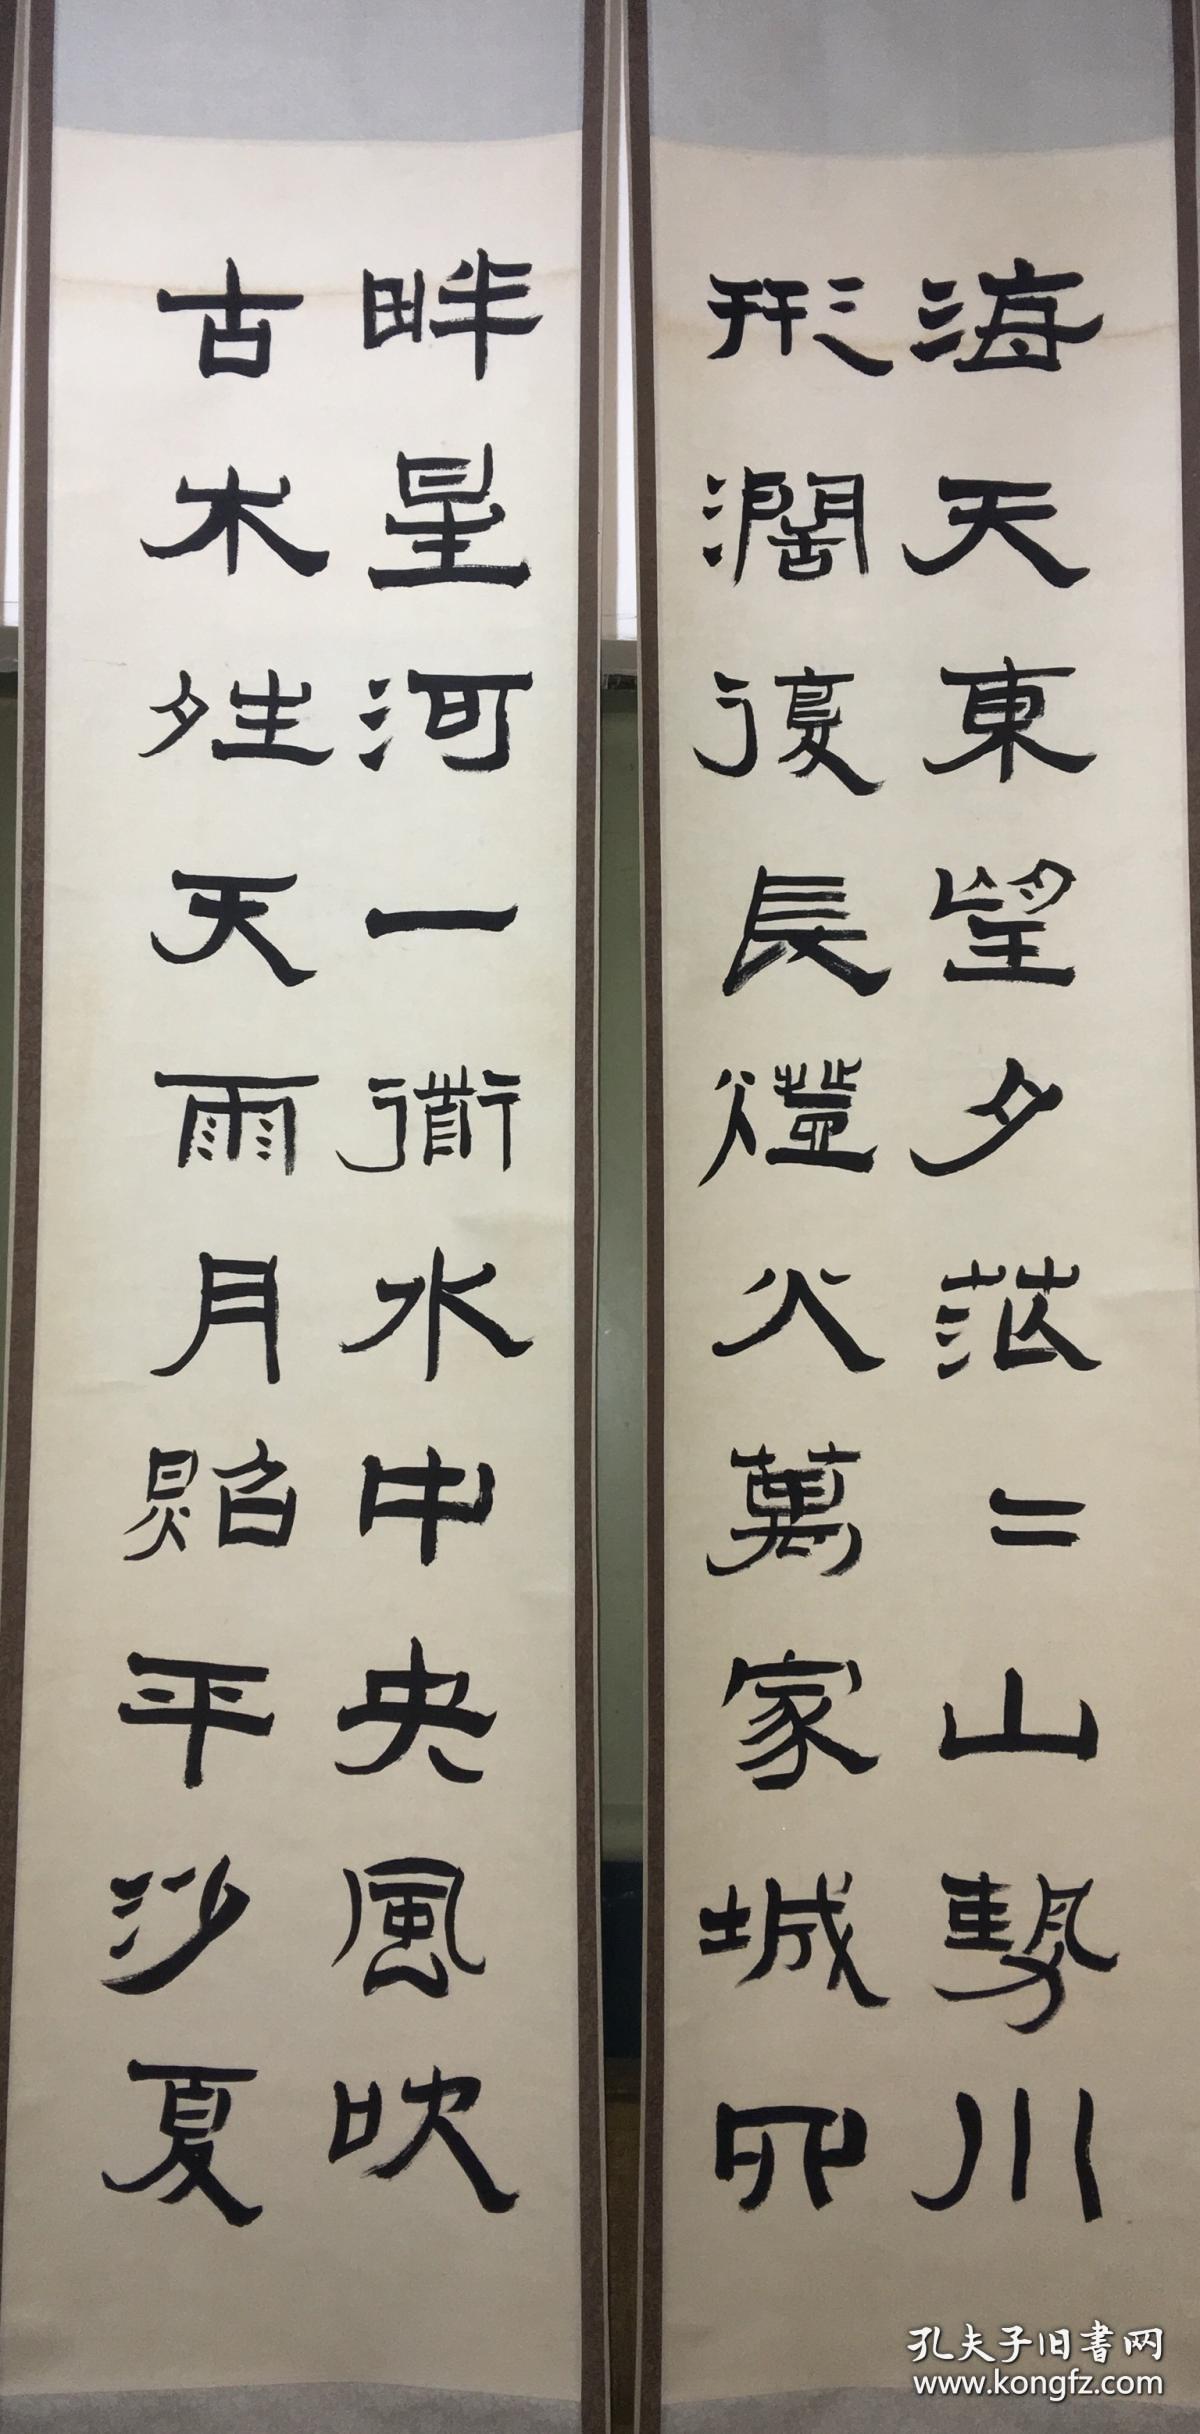 海天東望夕茫〻山勢川
形濶復長燈火萬家城四
畔星河一衟水中央風吹
古木夝天雨月照平沙夏
孔夫子旧書网
www.kongfz.com